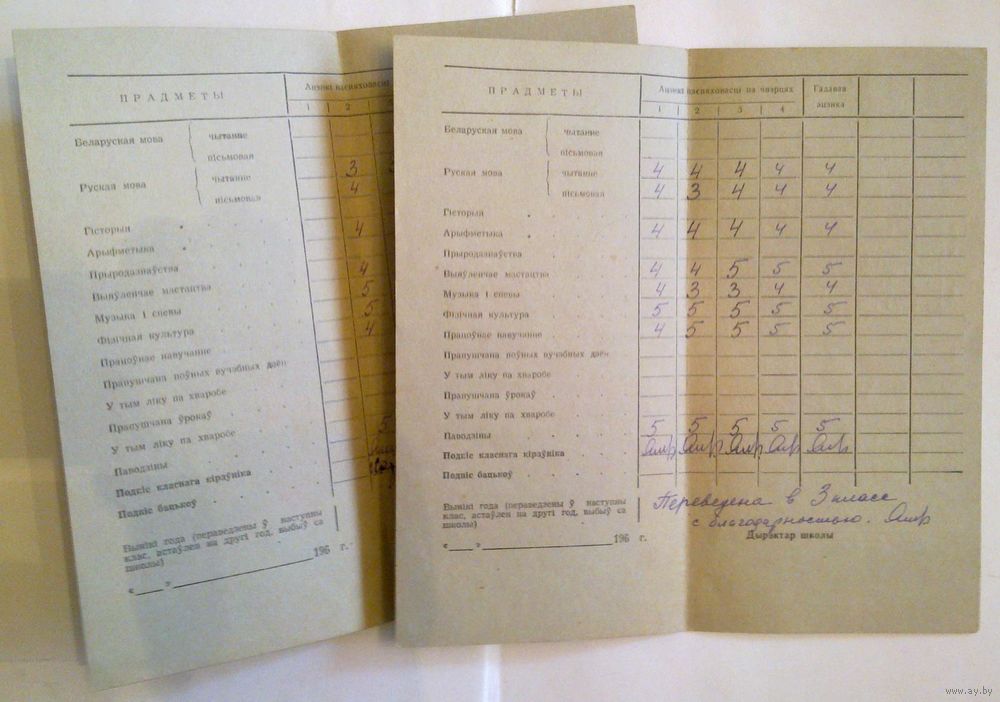 ПРАДМЕТЫ
Адзнакі паспяховасці
1 2
Беларуская мова
чытанне
пісьмовая
Руская мова
чытанне 3
пісьмовая 4
Гісторыя
Арыфметыка 4
Прыродазнаўства
Выяўленчае мастацтва 4
Музыка і спевы 5
Фізічная культура 5
Працоўнае навучанне 4
Прапушчана поўных вучэбных дзён
У тым ліку па хваробе
Прапушчана ўрокаў
У тым ліку па хваробе
Паводзіны 5
Подпіс класнага кіраўніка
Подпіс бацькоў
Вынікі года (пераведзены ў наступны
клас, астаўлен на другі год, выбыў са
школы)
« » 196 г.
ПРАДМЕТЫ
Адзнакі паспяховасці па чвэрцях
Гадавая
адзнака
1 2 3 4
Беларуская мова
чытанне
пісьмовая
Руская мова
чытанне 4 4 4 4 4
пісьмовая 4 3 4 4 4
Гісторыя
Арыфметыка 4 4 4 4 4
Прыродазнаўства
Выяўленчае мастацтва 4 4 5 5 5
Музыка і спевы 4 3 3 4 4
Фізічная культура 5 5 5 5 5
Працоўнае навучанне 4 5 5 5 5
Прапушчана поўных вучэбных дзён
У тым ліку па хваробе
Прапушчана ўрокаў
У тым ліку па хваробе
Паводзіны 5 5 5 5 5
Подпіс класнага кіраўніка
Подпіс бацькоў
Вынікі года (пераведзены ў наступны
клас, астаўлен на другі год, выбыў са
школы)
Переведена в 3 класс
с благодарностью.
« » 196 г.
Дырэктар школы
www.ay.by